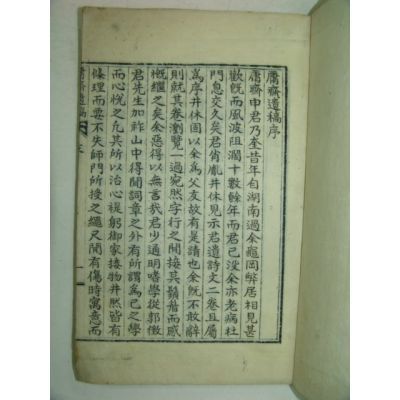 庸齋遺稿序
庸齋申君乃奎昔年自湖南過余龜岡弊居相見甚
歡旣而風波阻濶十數餘年而君已沒余亦老病杜
門息交久矣君胤井休見示君遺詩文二卷且屬
爲序井休固以余爲父友故有是請也余旣不敢辭
則就其卷瀏覽一過宛然字行之間接其鬚眉而感
慨繼之矣余惡得以無言哉君少通明嗜學從郭徵
君先生加祚山中得聞詞章之外有所謂爲己之學
而心悅之凡其所以治心褆躬御家接物井然皆有
條理而要不失師門所授之繩尺間有傷時寓意而
庸齋遺稿 序 一